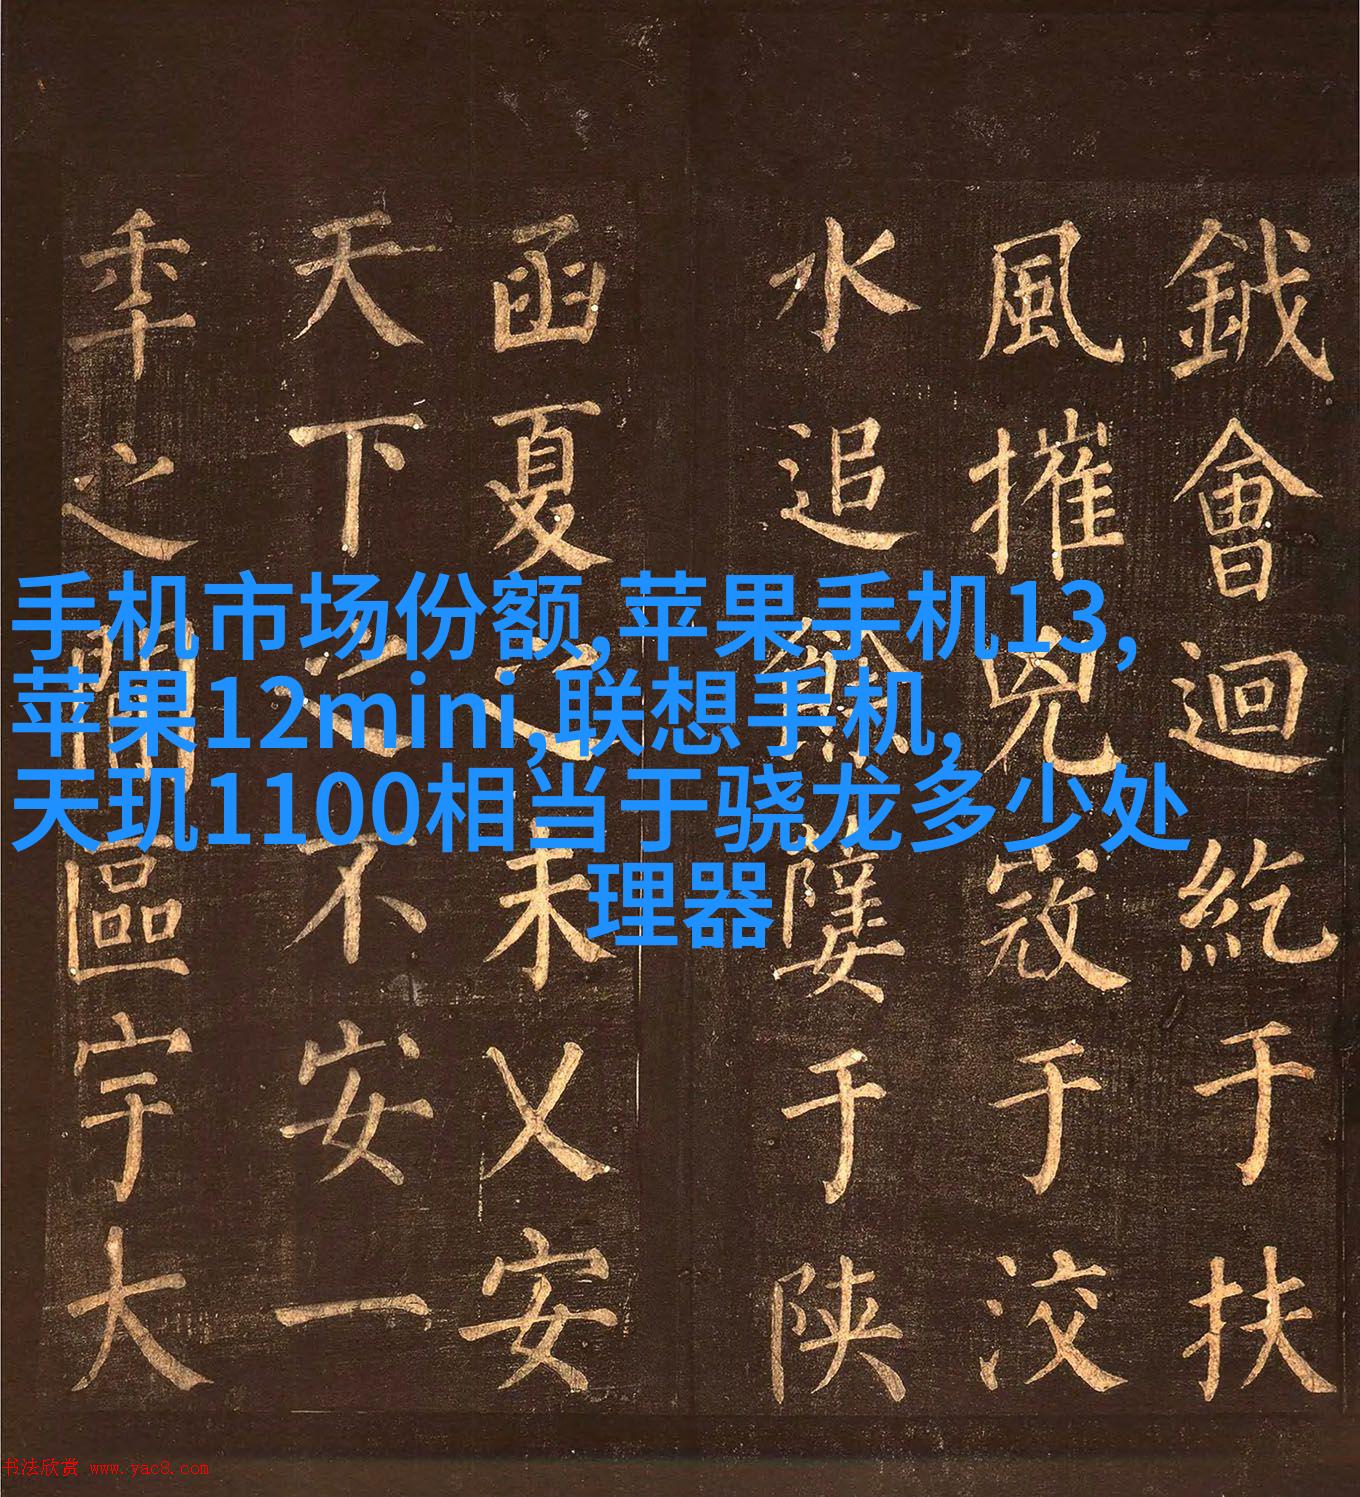 手机市场份额,苹果手机13,
苹果12mini,联想手机,
天玑1100相当于骁龙多少处
理器
鉞會迴紇于扶
風摧兇寇于洨
水追餘孽于陝
函夏之未乂安
天下之不安一
年之間區宇大
书法欣赏 www.yac8.com